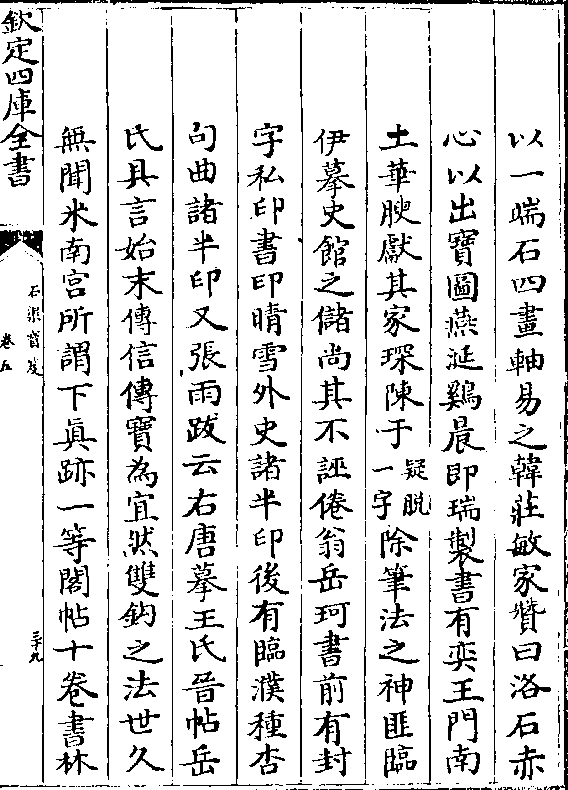 以一端石四畫軸易之韓莊敏家贊曰洛石赤
心以出寶圖燕涎鷄晨即瑞製書有奕王門南
土華腴獻其家琛陳于疑脫一字除筆法之神匪臨
伊摹史館之儲尚其不誣倦翁岳珂書前有封
字私印書印晴雪外史諸半印後有臨濮種杏
句曲諸半印又張雨跋云右唐摹王氏晉帖岳
氏具言始末傳信傳寶為宜然雙鈎之法世久
無聞米南宮所謂下真跡一等閣帖十卷書林
欽定四庫全書
石渠寶笈
卷五
三十九